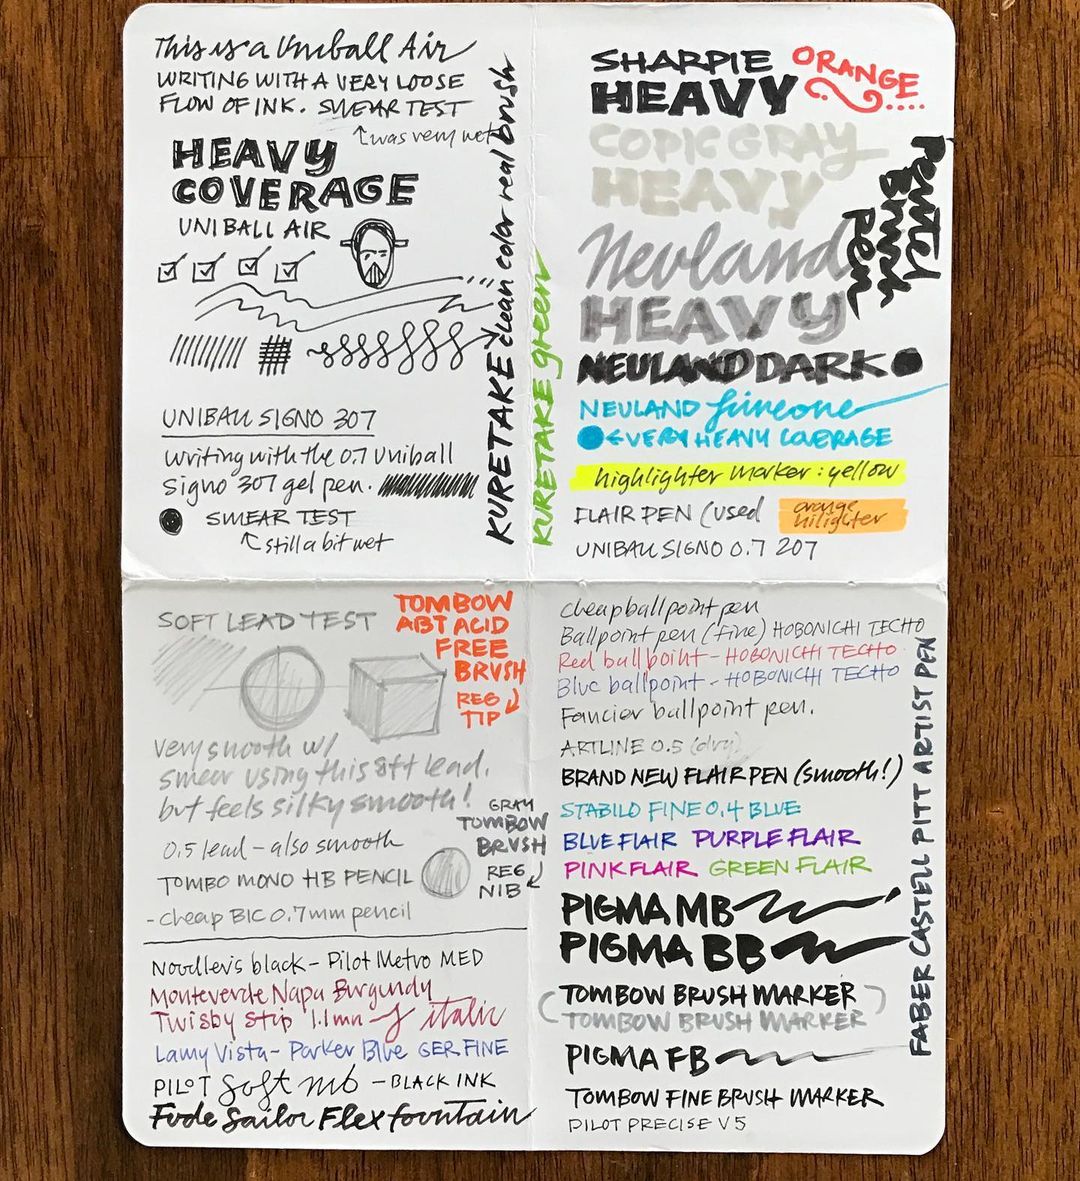 This is a Uniball Air
WRITING WITH A VERY LOOSE
FLOW OF INK. SMEAR TEST
↑ was very wet
HEAVY
COVERAGE
UNIBALL AIR
UNIBALL SIGNO 307
writing with the 0.7 Uniball
Signo 307 gel pen.
SMEAR TEST
↑ still a bit wet
KURETAKE clean color real brush
KURETAKE green
SHARPIE
HEAVY
ORANGE
COPIC GRAY
HEAVY
Pentel
Brush
Pen
Neuland
HEAVY
NEULAND DARK
NEULAND fineone
← VERY HEAVY COVERAGE
highlighter marker: yellow
FLAIR PEN (used
orange
hilighter
UNIBALL SIGNO 0.7 207
SOFT LEAD TEST
TOMBOW
ABT ACID
FREE
BRUSH
REG
TIP
very smooth w/
smear using this soft lead.
but feels silky smooth!
GRAY
TOMBOW
BRUSH
REG
NIB
0.5 lead - also smooth
TOMBO MONO HB PENCIL
- cheap BIC 0.7mm pencil
Noodler's black - Pilot Metro MED
Monteverde Napa Burgundy
Twisby Stip 1.1mm italic
Lamy Vista - Parker Blue GER FINE
PILOT Soft mb - BLACK INK
Fude Sailor Flex fountain
cheap ballpoint pen
Ballpoint pen (fine) HOBONICHI TECHO
Red ballpoint - HOBONICHI TECHO
Blue ballpoint - HOBONICHI TECHO
Fancier ballpoint pen.
ARTLINE 0.5 (dry)
BRAND NEW FLAIR PEN (smooth!)
STABILO FINE 0.4 BLUE
BLUE FLAIR PURPLE FLAIR
PINK FLAIR GREEN FLAIR
PIGMA MB
PIGMA BB
TOMBOW BRUSH MARKER
TOMBOW BRUSH MARKER
PIGMA FB
TOMBOW FINE BRUSH MARKER
PILOT PRECISE V5
FABER CASTELL PITT ARTIST PEN